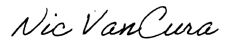 Nic VanCura